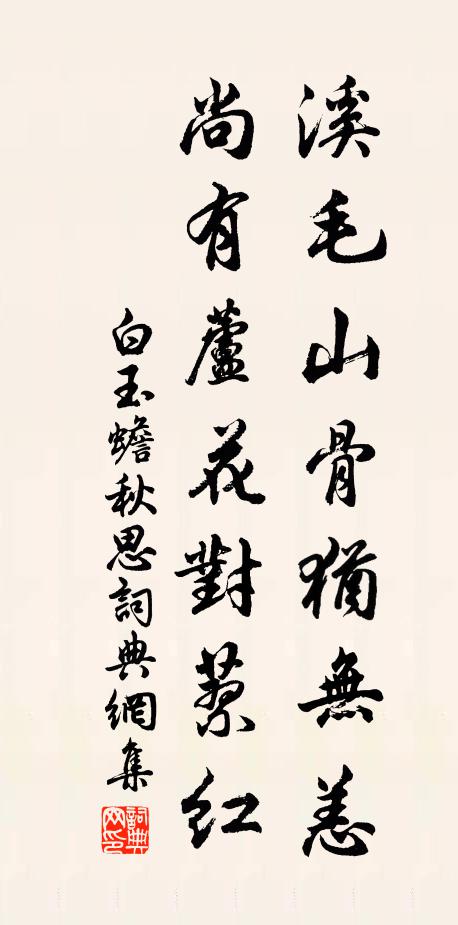 溪毛山骨猶無恙
尚有蘆花對蓼紅
白玉蟾秋思詞典網集
詞典網印